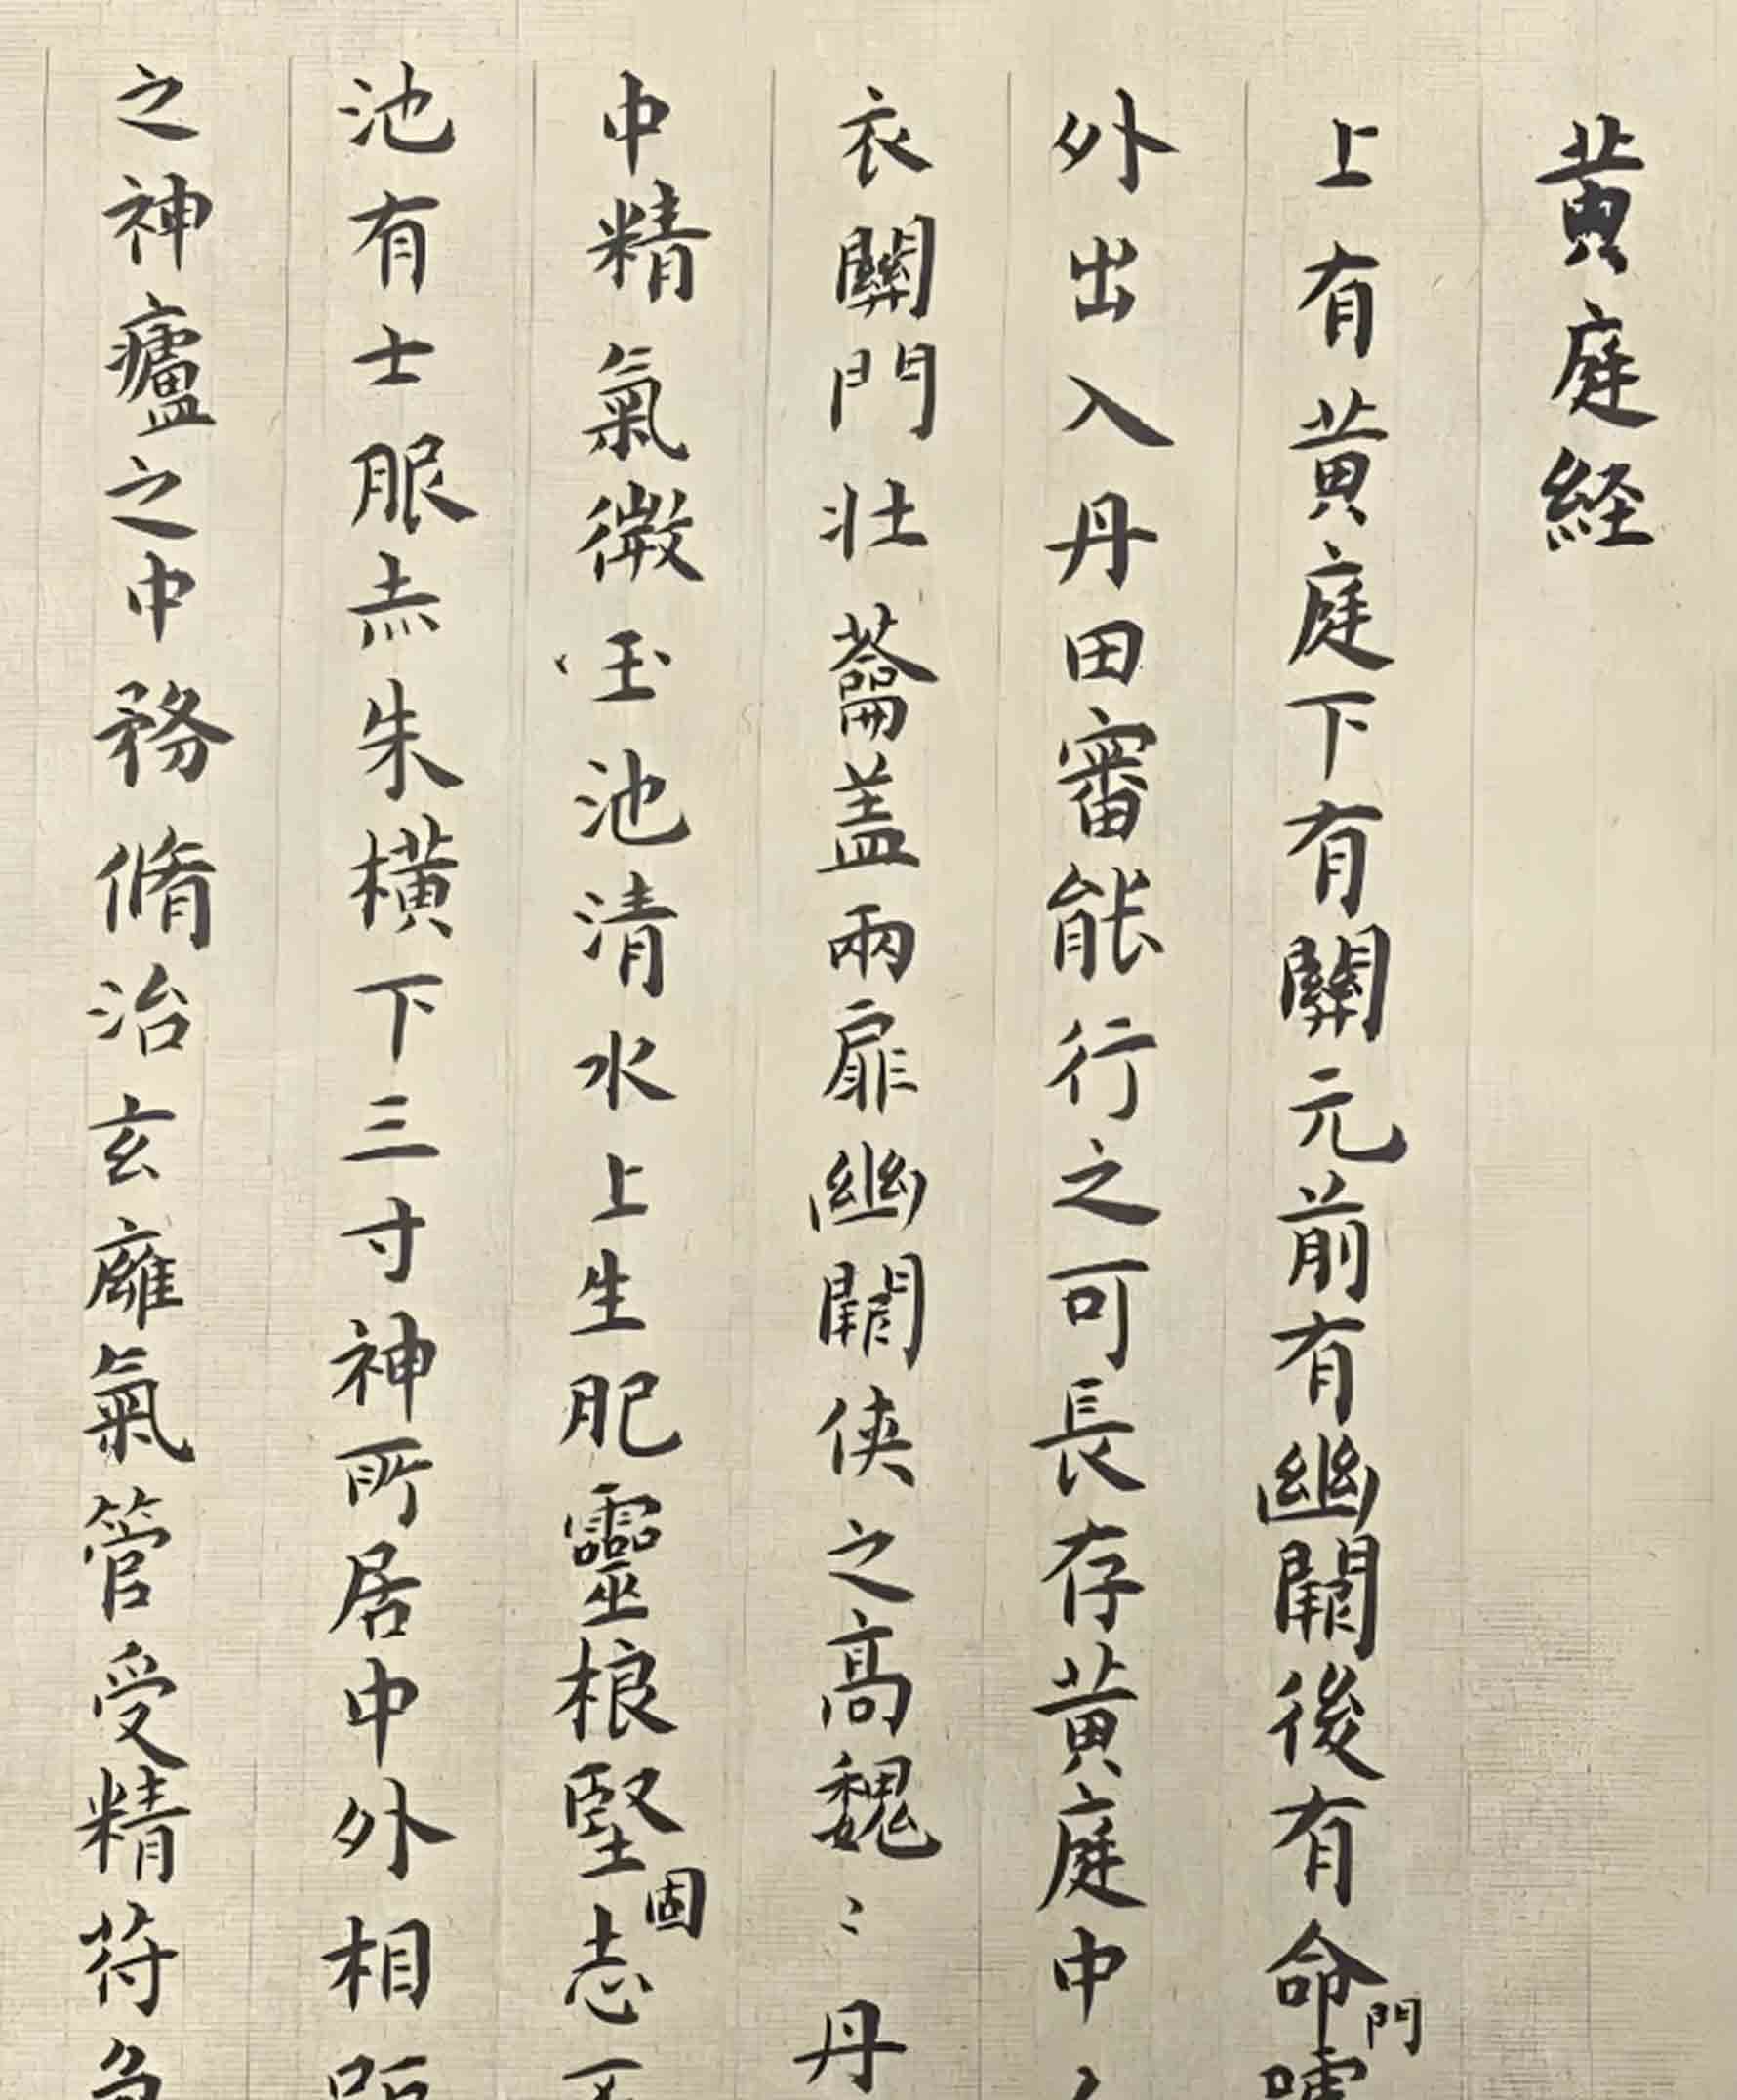 黄庭経
上有黄庭下有關元前有幽闕後有命門嘘
外出入丹田審能行之可長存黄庭中人
衣關門壯蘥盖兩扉幽闕侠之高魏〻丹
中精氣微玉池清水上生肥靈根堅固志不
池有士服赤朱横下三寸神所居中外相距
之神廬之中務脩治玄癰氣管受精符急